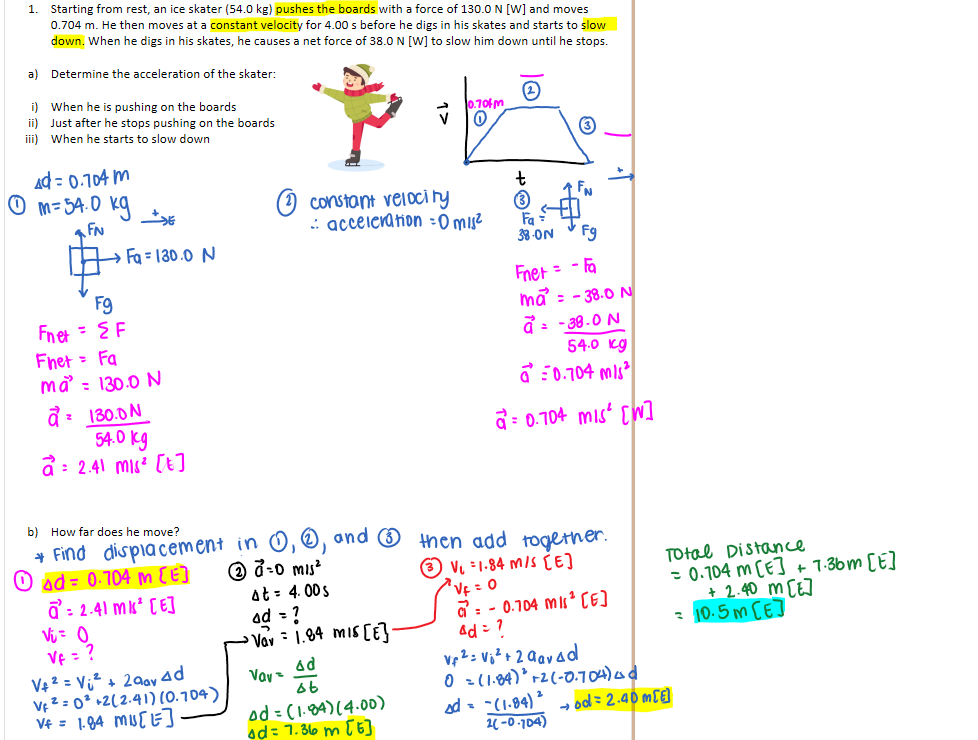 1. Starting from rest, an ice skater (54.0 kg) pushes the boards with a force of 130.0 N [W] and moves
0.704 m. He then moves at a constant velocity for 4.00 s before he digs in his skates and starts to slow
down. When he digs in his skates, he causes a net force of 38.0 N [W] to slow him down until he stops.
a) Determine the acceleration of the skater:
i) When he is pushing on the boards
ii) Just after he stops pushing on the boards
iii) When he starts to slow down
V
0.704m
①
②
③
t
Δd = 0.704 m
① m = 54.0 kg
+ E
FN
Fa = 130.0 N
Fg
Fnet = ΣF
Fnet = Fa
ma = 130.0 N
a = 130.0 N
54.0 kg
a = 2.41 m/s² [E]
② constant velocity
∴ acceleration = 0 m/s²
③
+
FN
Fa =
38.0N
Fg
Fnet = - Fa
ma = - 38.0 N
a = -38.0 N
54.0 kg
a = -0.704 m/s²
a = 0.704 m/s² [W]
b) How far does he move?
* Find displacement in ①, ②, and ③ then add together.
① Δd = 0.704 m [E]
a = 2.41 m/s² [E]
Vi = 0
Vf = ?
Vf² = Vi² + 2aav Δd
Vf² = 0² + 2(2.41)(0.704)
Vf = 1.84 m/s [E]
② a = 0 m/s²
Δt = 4.00s
Δd = ?
Vav = 1.84 m/s [E]
Vav = Δd
Δt
Δd = (1.84)(4.00)
Δd = 7.36 m [E]
③ Vi = 1.84 m/s [E]
Vf = 0
a = - 0.704 m/s² [E]
Δd = ?
Vf² = Vi² + 2aavΔd
0 = (1.84)² + 2(-0.704)Δd
Δd = -(1.84)² → Δd = 2.40 m[E]
2(-0.704)
Total Distance
= 0.704 m [E] + 7.36m [E]
+ 2.40 m[E]
= 10.5 m [E]